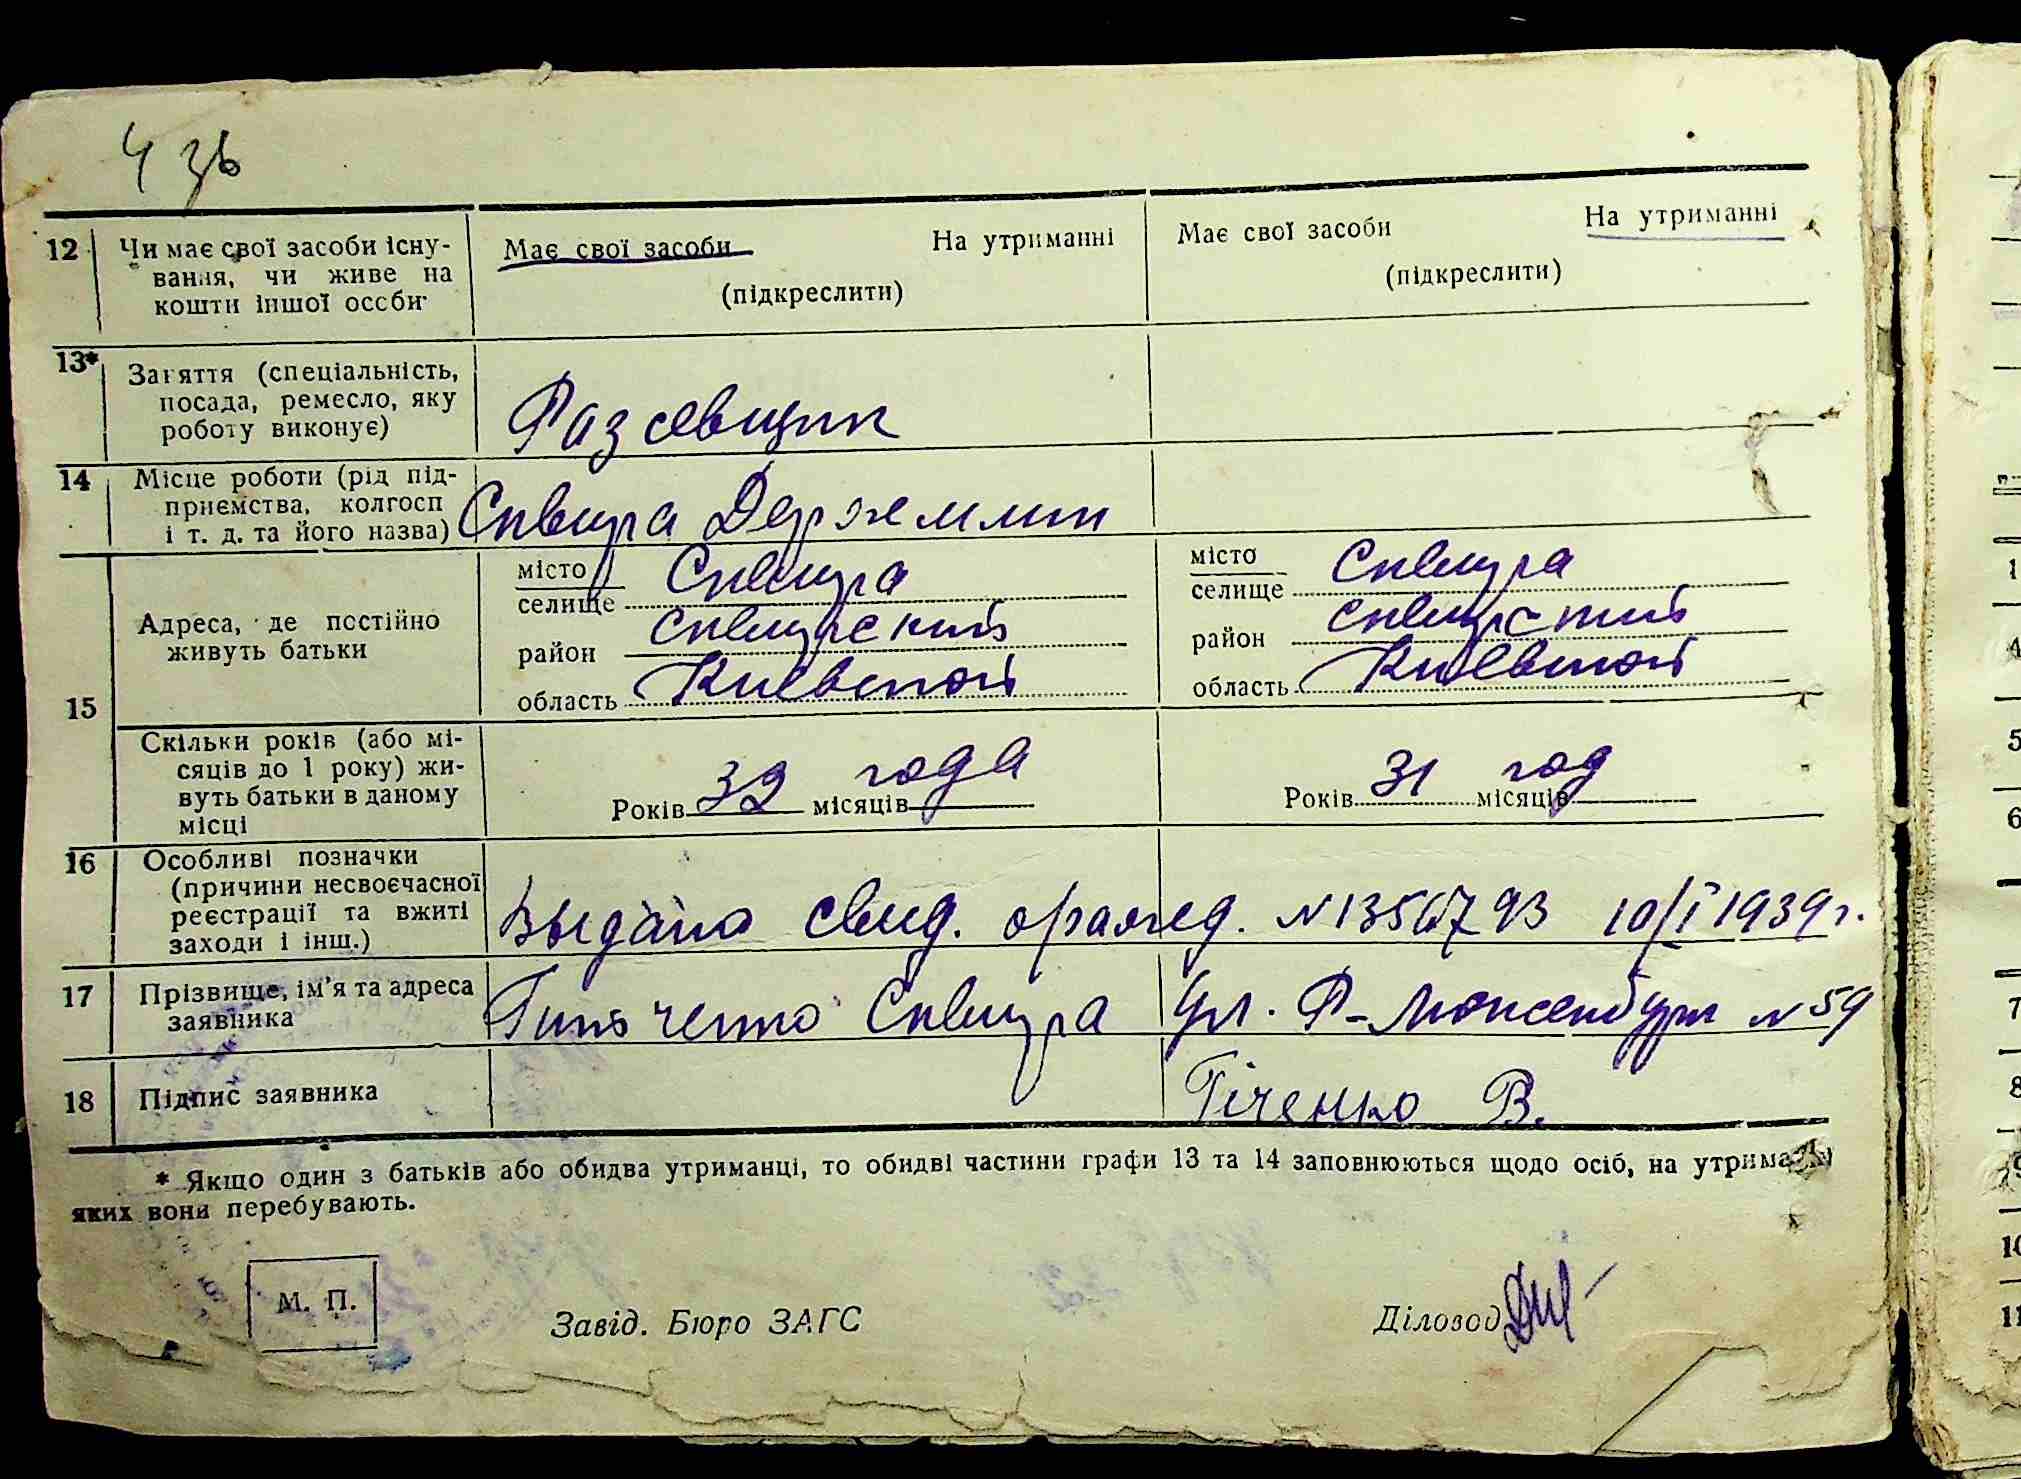 12 Чи має свої засоби існу-
вання, чи живе на
кошти іншої особи
Має свої засоби На утриманні
(підкреслити)
Має свої засоби На утриманні
(підкреслити)
13* Заняття (спеціальність,
посада, ремесло, яку
роботу виконує)
Разсевщик
14 Місце роботи (рід під-
приємства, колгосп
і т. д. та його назва)
Сквира Держмлин
15
Адреса, де постійно
живуть батьки
місто Сквира
селище
район Сквирский
область Киевской
місто Сквира
селище
район Сквирский
область Киевской
Скільки років (або мі-
сяців до 1 року) жи-
вуть батьки в даному
місці
Років 32 місяців года
Років 31 місяців год
16 Особливі позначки
(причини несвоєчасної
реєстрації та вжиті
заходи і інш.)
Выдано свид. о ражед. N 1356793 10/I 1939 г.
17 Прізвище, ім'я та адреса
заявника
Сквира ул. Р-Люксенбург N 59
18 Підпис заявника
Гіченко В.
* Якщо один з батьків або обидва утриманці, то обидві частини графи 13 та 14 заповнюються щодо осіб, на
яких вони перебувають.
М. П.
Завід. Бюро ЗАГС
Діловод